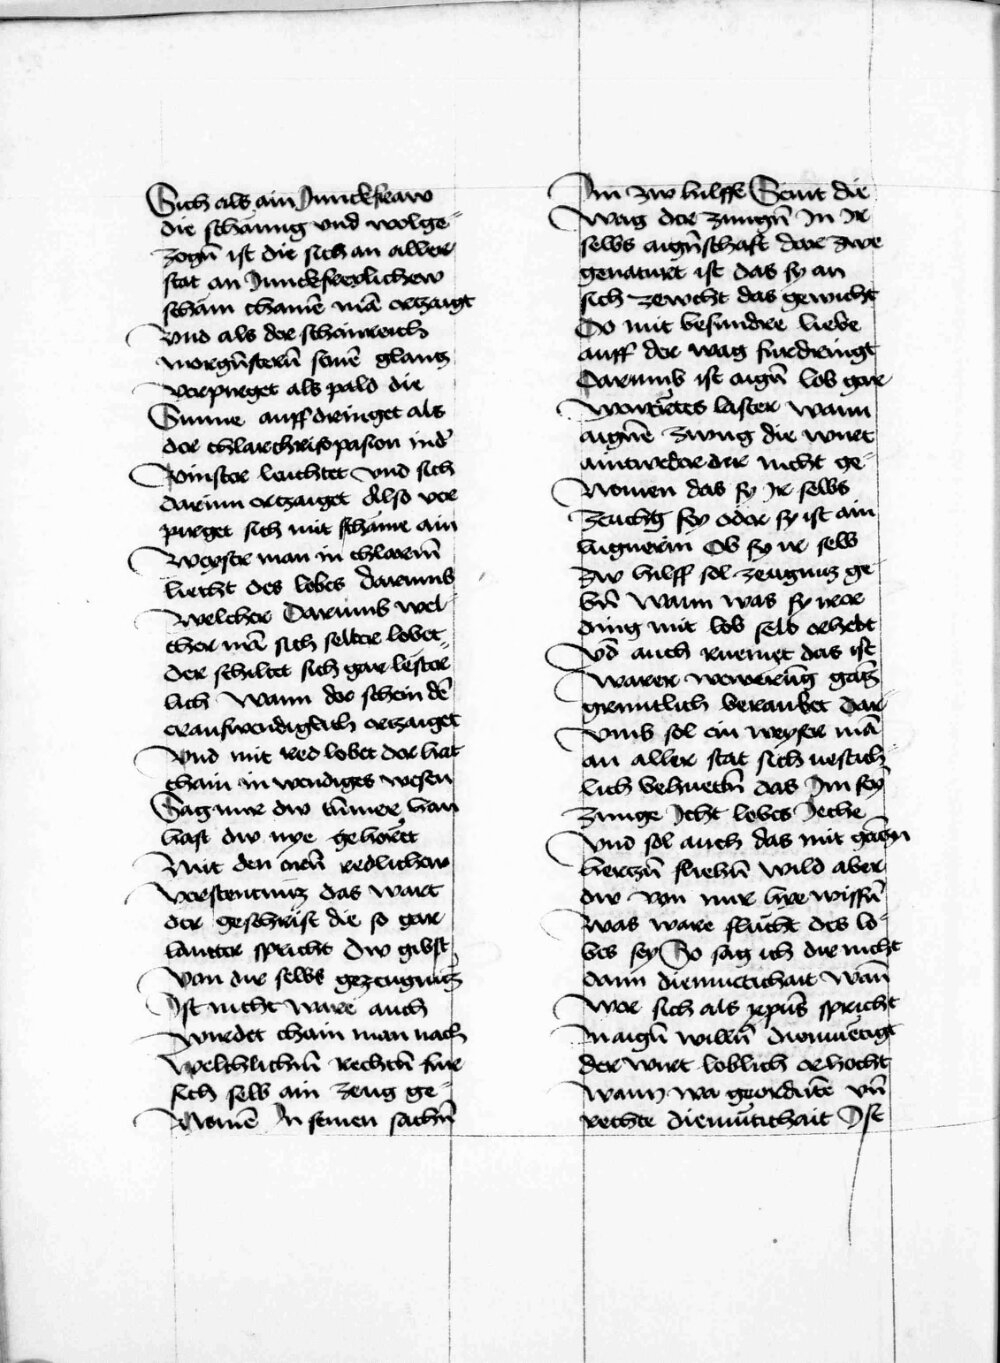 Sich als ain Junckfraw
die schamig vnd wolge-
zogn̄ ist die sich an aller
stat an Junckfreylicher
scham thamē mā ertzaigt
Vnd als der scheinreich
morgn̄sterñ seinē glantz
verpirget als pald die
Sunne auff dringet als
der chlar chrisopasion in d'
Vinster leuchtet Vnd sich
darinn ertzaiget Also ver
pirget sich mit schame ain
Weyser man in chlarem̄
liecht des lobes darumb
Welcher Darumb wel-
cher mā sich selber lobet
der schiltet sich gar lester
lich Wann der schein dē
er auswendigclich ertzaiget
Vnd mit red lobet der hat
chain in wendiges wesen
Sag mir dw tūmer han
hast dw nye gehöret
Mit den orñ redlicher
verstentnuz das wart
der geschrift die so gar
lautter spricht Dw gibst
Von dir selbs gezeugnüz
Ist nicht ware auch
Wirdet chain man nach
Weltlichm̄ rechtn̄ für
sich selb ain zeug ge-
Nomē In seinen sachn̄
Im zw hilffe Seint die
Wag der zungn̄ In Ir
selbs aign̄schaft dar zwe
genaturt ist das sy an
sich zewcht das gewicht
So mit besundre liebe
auff der wag fürdringt
Darumb ist aign̄ lob gar
Wortretes laster wann
aignē zwng die wirt
aintweder dir nicht ge-
Nomen das sy Ir selbs
zeuchg sey oder sy ist ain
lugnerin Ob sy ir selb
zw hilff sol zeugnuz ge
bn̄ Wann was sy irer
ding mit lob selb erhebt
Vd̄ auch ruemet das ist
Warer wewerūg gātz
grüntlich beraubet Dar
Vmb sol ein weyser mā
an aller stat sich vestich-
lich behuetn̄ das Im sey
zunge Icht lobes Jeche
Vnd sol auch das mit gātzn
hertzn̄ fliehn̄ Wild aber
dw von mir hye wissn̄
Was ware flucht des lo-
bes sey So sag ich dir nicht
dann diemueticheit Wañ
Wer sich als xpūs spricht
In aign̄ willn̄ diemuetigt
der wirt loblich erhocht
Wann wa geordnte vn̄
rechte diemuticheit Ist